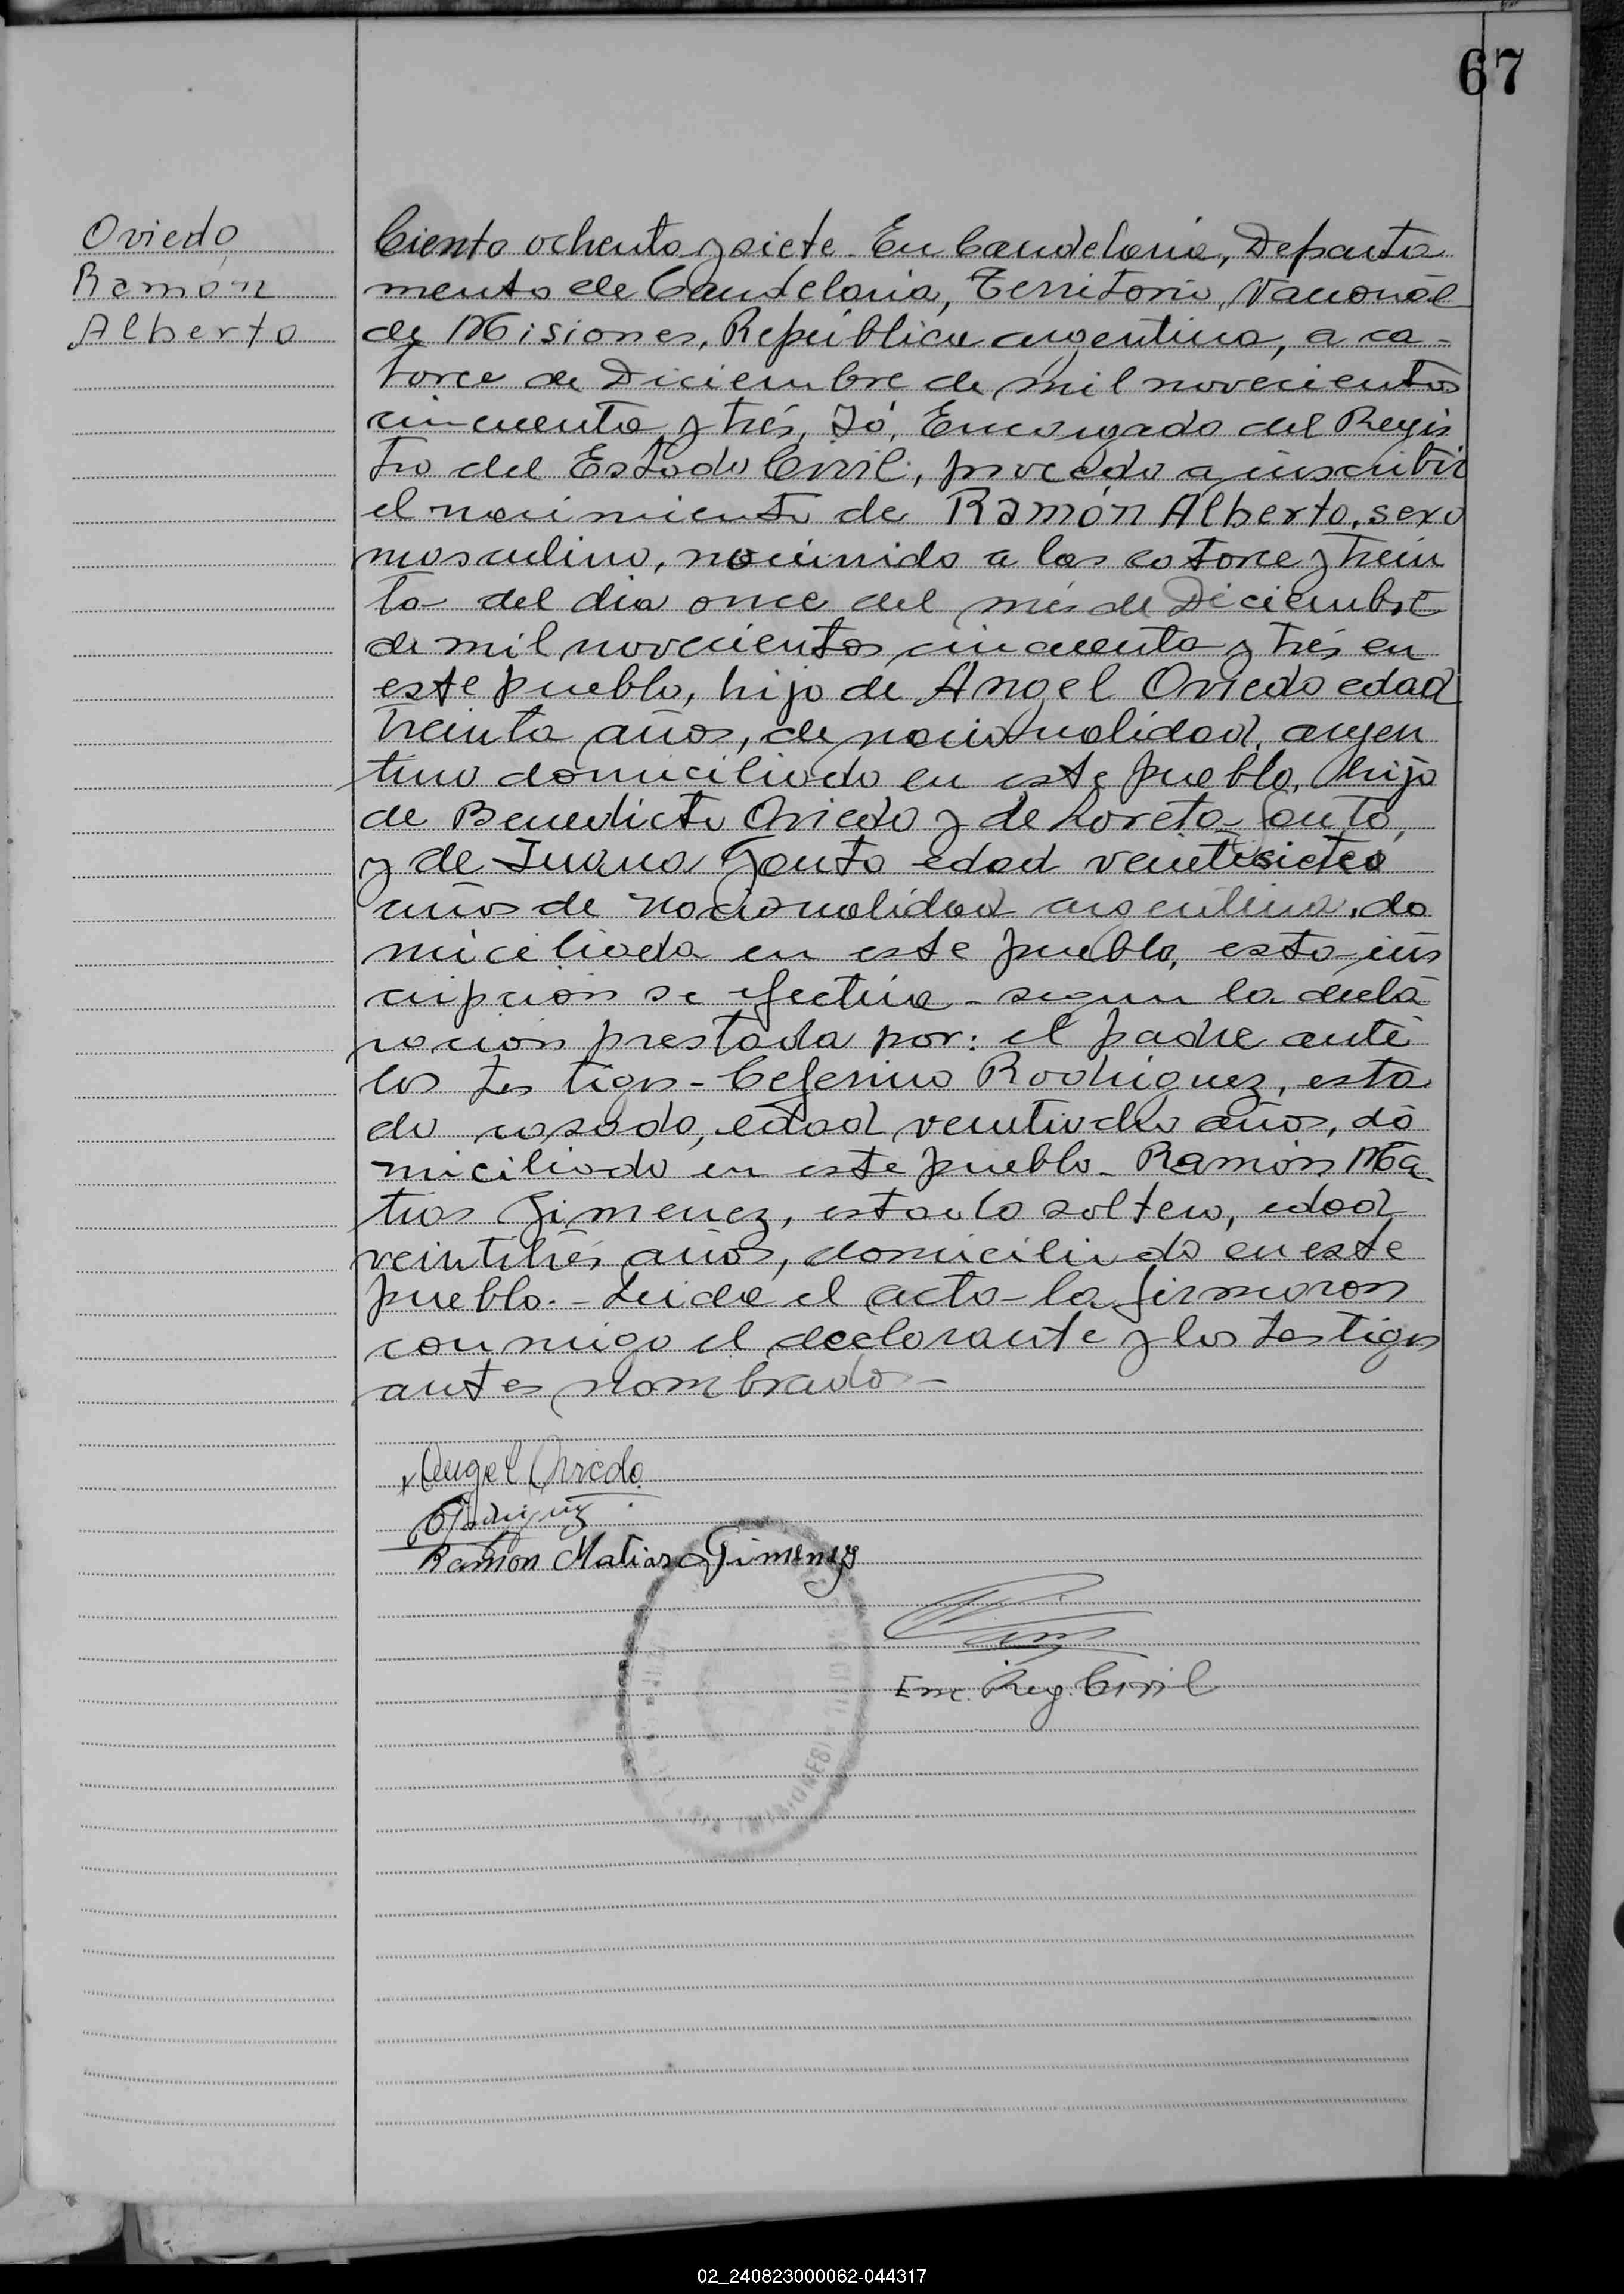 67
Oviedo
Ramón
Alberto
Ciento ochenta y siete. En Candelaria, Departa
mento de Candelaria, Territorio Nacional
de Misiones, República argentina, a ca-
torce de Diciembre de mil novecientos
cincuenta y trés, Yó, Encargado del Regis
tro del Estado Civil, procedo a inscribir
el nacimiento de Ramón Alberto, sexo
masculino, nacimido a las catorce y trein
ta del dia once del més de Diciembre
de mil novecientos cincuenta y trés en
este pueblo, hijo de Angel Oviedo edad
treinta años, de nacionalidad argen
tino domiciliado en este pueblo, hijo
de Benedicto Oviedo y de Loreta
y de Juana edad veintisiete
años de nacionalidad argentina, do
miciliada en este pueblo, esta ins
cripción se efectúa - segun la decla
ración prestada por: el padre ante
los testigos - Ceferino Rodriguez, esta
do casado, edad veintiocho años, do
miciliado en este pueblo - Ramón Ma
tias Jimenez, estado soltero, edad
veintitrés años, domiciliado en este
pueblo. - Leida el acta - la firmaron
conmigo el declarante y los testigos
antes nombrados -
Angel Oviedo
Rodriguez
Ramon Matias Gimenez
Enc. Reg. Civil
(MISIONES)
02_240823000062-044317